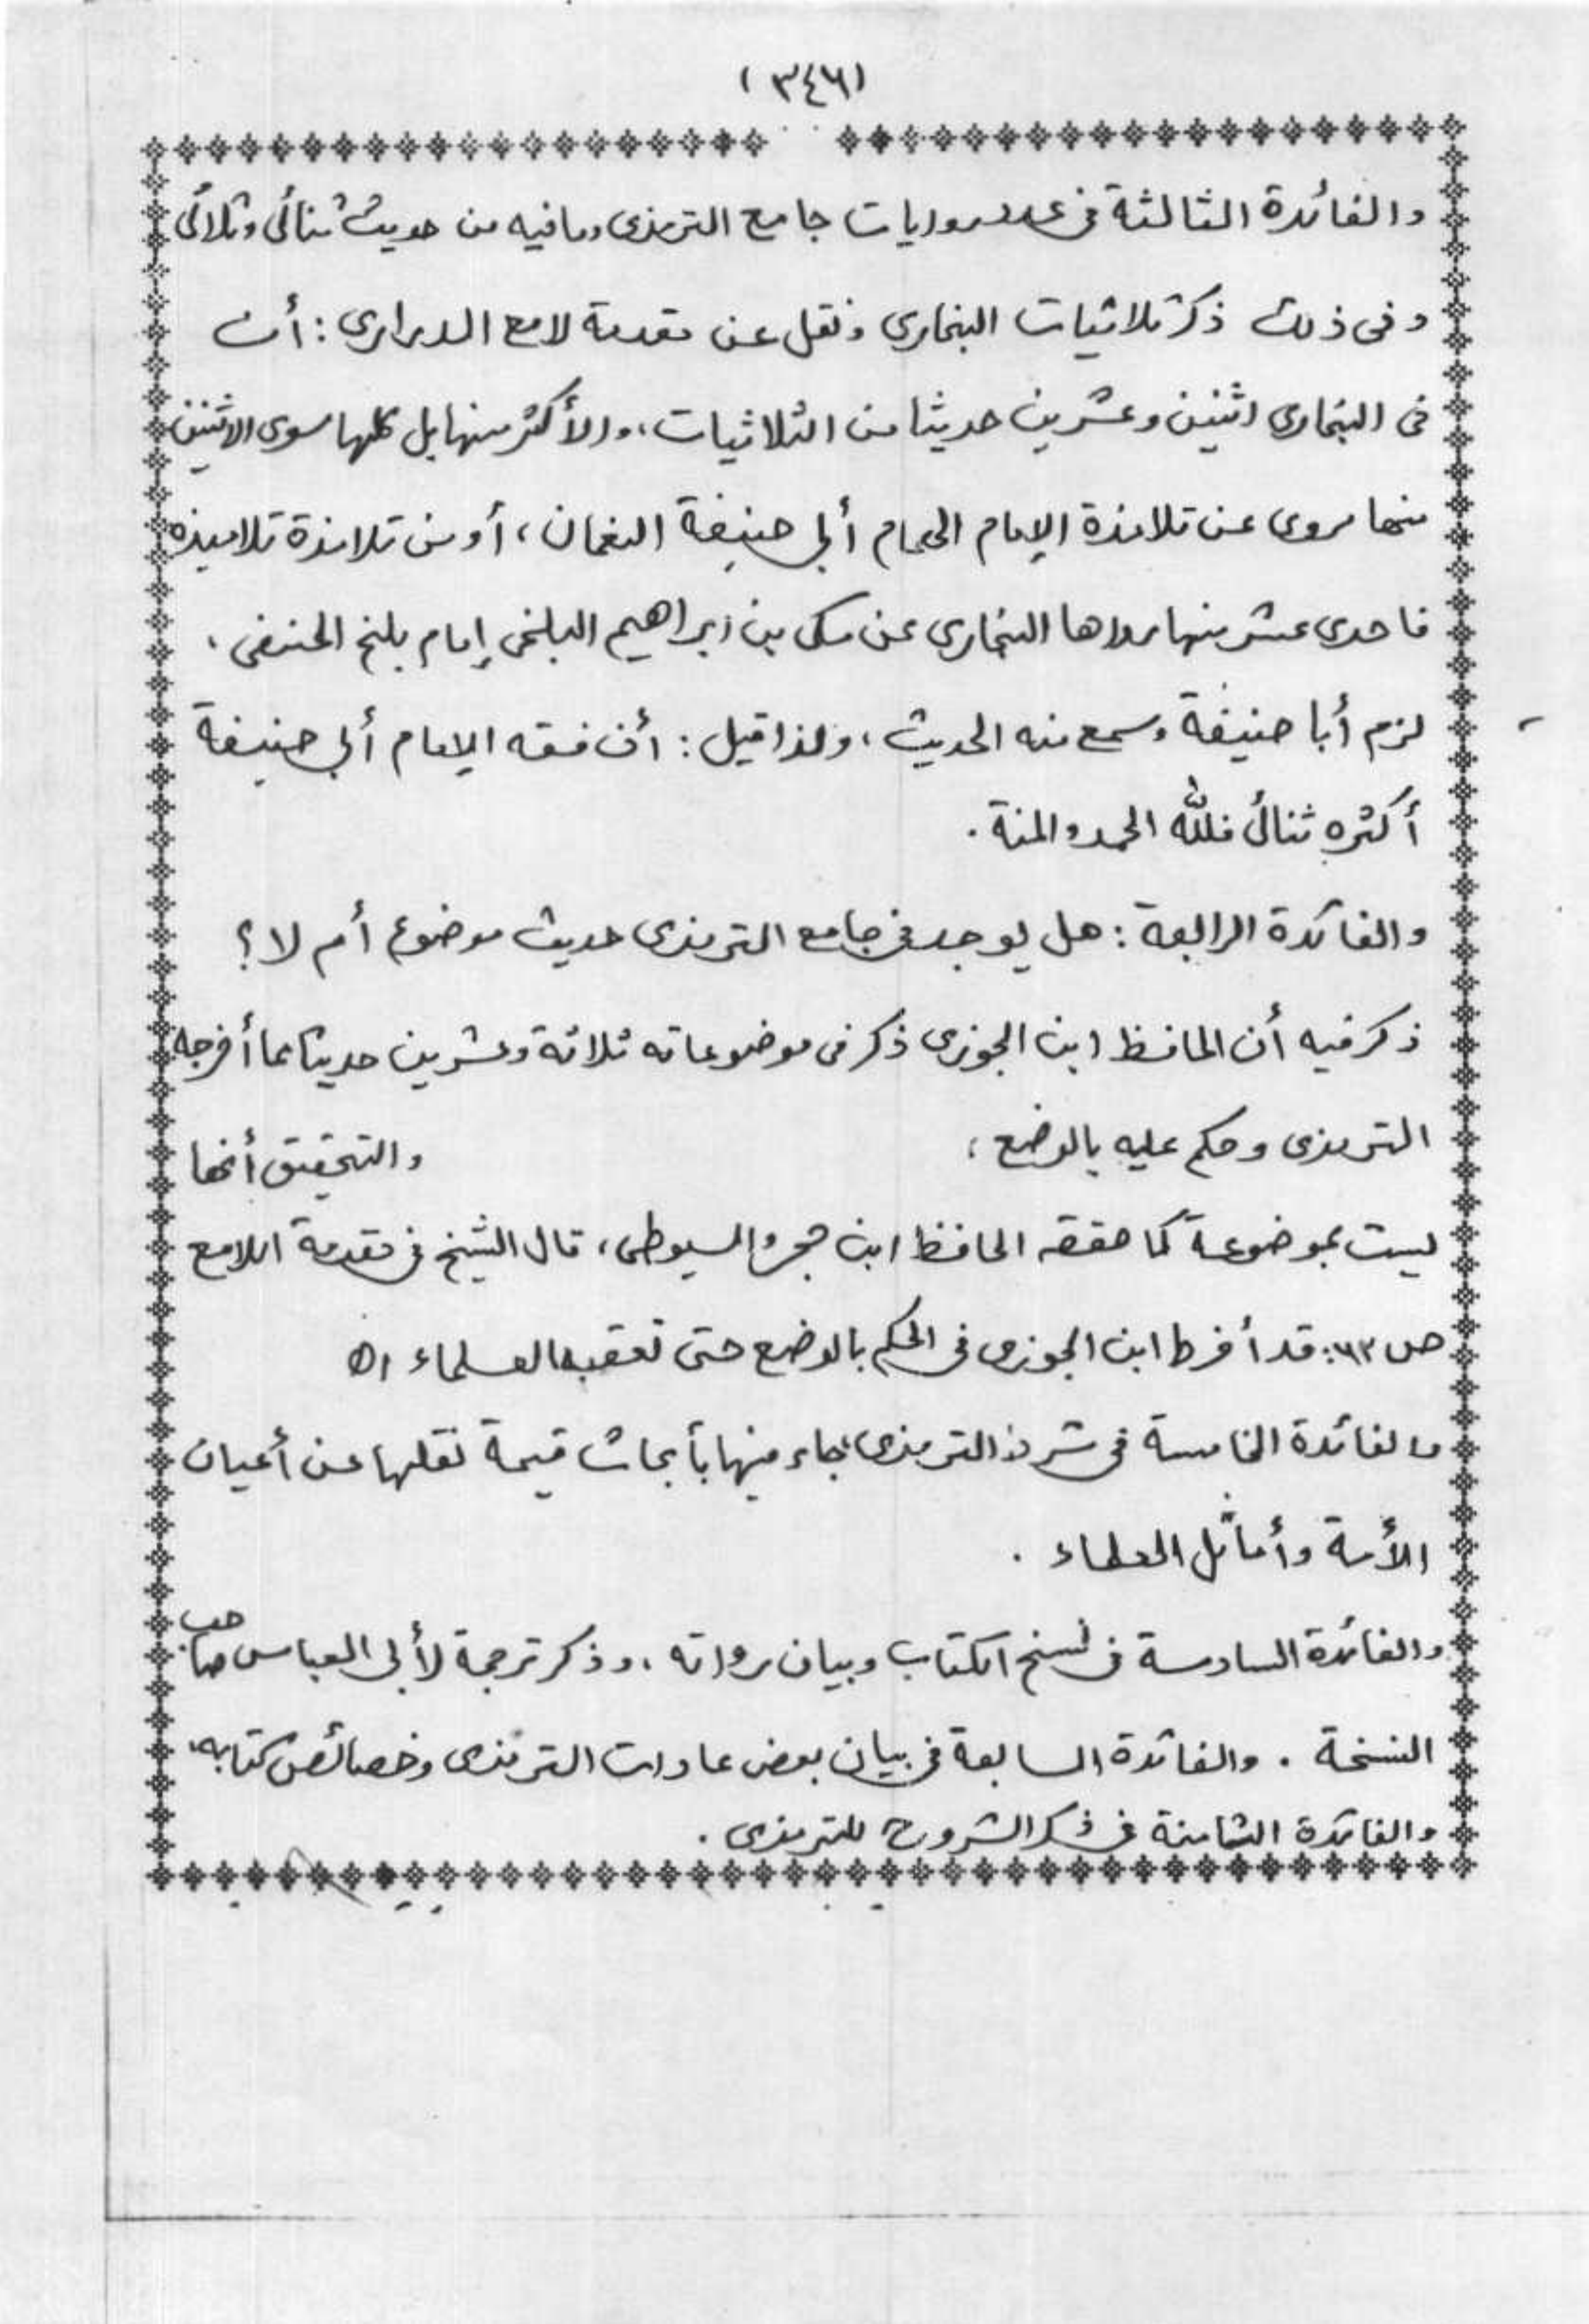 (٣٤٦)
والفائدة الثالثة فى عدد روايات جامع الترمذى وما فيه من حديث ثنائى وثلاثى
وفى ذلك ذكر ثلاثيات البخارى ونقل عن مقدمة لامع الدرارى : أن
فى البخارى اثنين وعشرين حديثا من الثلاثيات، والأكثر منها بل كلها سوى الاثنين
منها مروى عن تلامذة الإمام الهمام أبى حنيفة النعمان، أو من تلامذة تلاميذه
فاحدى عشر منها رواها البخارى عن مكى بن ابراهيم البلخى إمام بلخ الحنفى ،
لزم أبا حنيفة وسمع منه الحديث، ولذا قيل : أن فقه الامام أبى حنيفة
أكثره ثنائى فلله الحمد والمنة .
والفائدة الرابعة : هل يوجد فى جامع الترمذى حديث موضوع أم لا ؟
ذكر فيه أن الحافظ ابن الجوزى ذكر فى موضوعاته ثلاثة وعشرين حديثا مما أخرجه
الترمذى وحكم عليه بالوضع ، والتحقيق أنها
ليست بموضوعة كما حققه الحافظ ابن حجر والسيوطى، قال الشيخ فى مقدمة اللامع
ص ٦٣: قد أفرط ابن الجوزى فى الحكم بالوضع حتى تعقبه العلماء اه
والفائدة الخامسة فى شرط الترمذى جاء فيها بأبحاث قيمة نقلها عن أعيان
الأمة وأماثل العلماء .
والفائدة السادسة فى نسخ الكتاب وبيان رواته ، وذكر ترجمة لأبى العباس صاحب
النسخة . والفائدة السابعة فى بيان بعض عادات الترمذى وخصائص كتابه،
والفائدة الثامنة فى ذكر الشروح للترمذى .